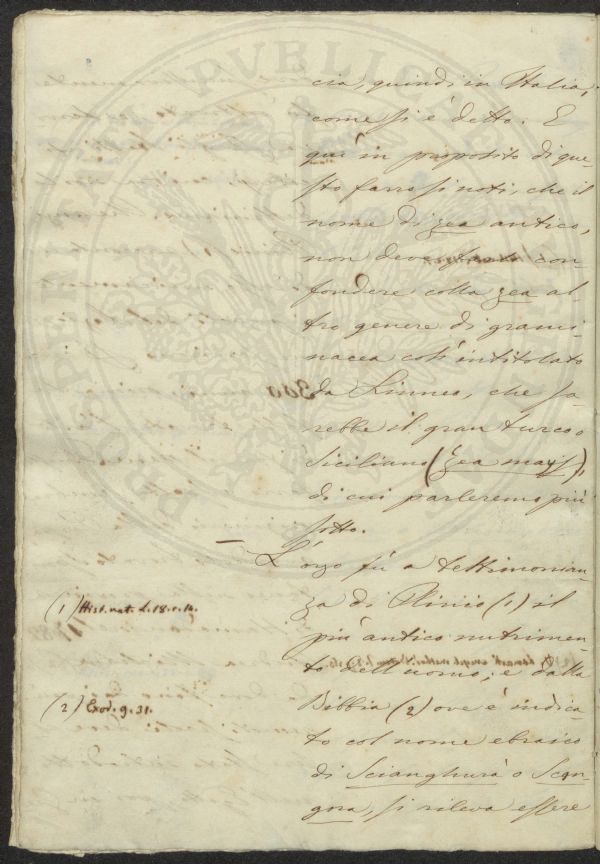 cia, quindi in Italia,
come si è detto. E
quì in proposito di que-
sto farro si noti, che il
nome di zea antico,
non deve con-
fondere colla zea al-
tro genere di grami-
nacea così intitolato
da Linneo, che sa-
rebbe il gran turco o
siciliano (zea mays),
di cui parleremo più
sotto.
L'orzo fù a testimonian-
za di Plinio (1) il
(1) Hist. nat. L. 18. c. 14.
più antico nutrimen-
to dell'uomo; e dalla
Bibbia (2) ove è indica-
(2) Exod. 9. 31.
to col nome ebraico
di Scianghurà o Scan-
gora, si rileva essere